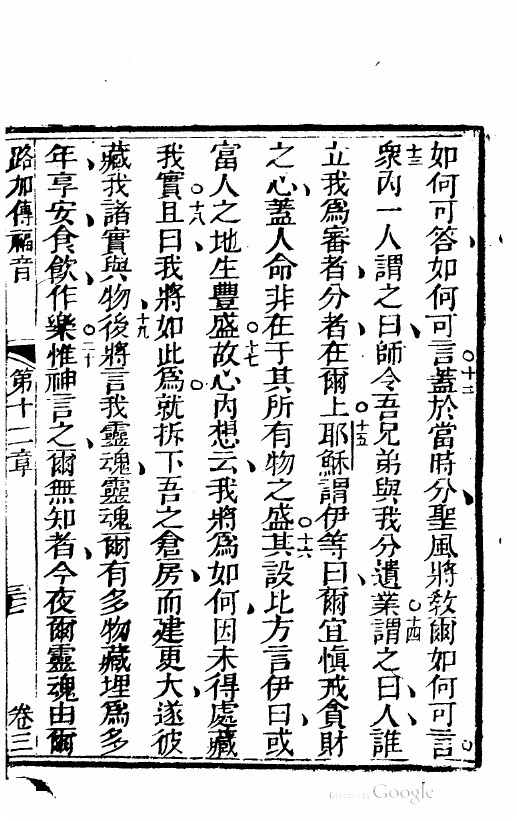 如何可答如何可言蓋於當時分聖風將教爾如何可言
衆內一人謂之曰師令吾兄弟與我分遺業謂之曰人誰
立我爲審者分者在爾上耶穌謂伊等曰爾宜愼戒貪財
之心蓋人命非在于其所有物之盛其設比方言伊曰或
富人之地生豐盛故心內想云我將爲如何因未得處藏
我實且曰我將如此爲就拆下吾之倉房而建更大遂彼
藏我諸實與物後將言我靈魂靈魂爾有多物藏埋爲多
年享安食飮作樂惟神言之爾無知者今夜爾靈魂由爾
路加傳福音 第十二章 卷三
十二
十三
十四
十五
十六
十七
十八
十九
二十
Digitized by Google